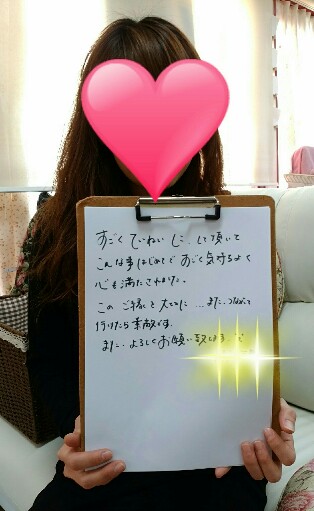 すごくていねいに、して頂いて
こんな事はじめてですごく気持ちよく
心も満たされました。
このご縁を大切に...また、つながって
行けたら素敵です。
また、よろしくお願い致します